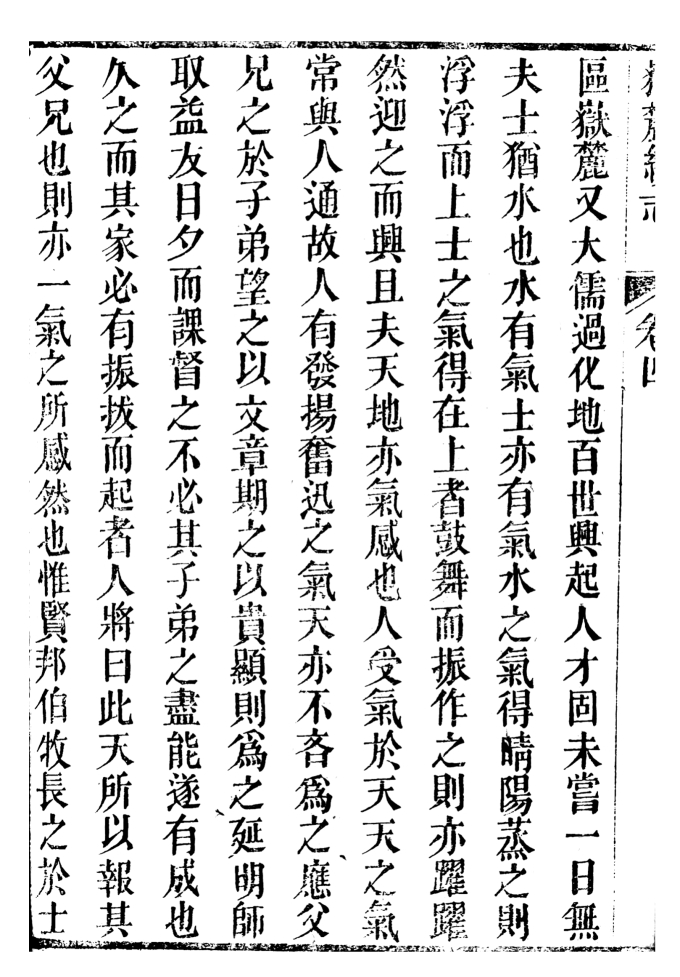 嶽麓續志
卷四
區嶽麓又大儒過化地百世興起人才固未嘗一日無
夫士猶水也水有氣士亦有氣水之氣得晴陽蒸之則
浮浮而上士之氣得在上者鼓舞而振作之則亦躍躍
然迎之而興且夫天地亦氣感也人受氣於天天之氣
常與人通故人有發揚奮迅之氣天亦不吝爲之應父
兄之於子弟望之以文章期之以貴顯則爲之延明師
取益友日夕而課督之不必其子弟之盡能遂有成也
久之而其家必有振拔而起者人將曰此天所以報其
父兄也則亦一氣之所感然也惟賢邦伯牧長之於士